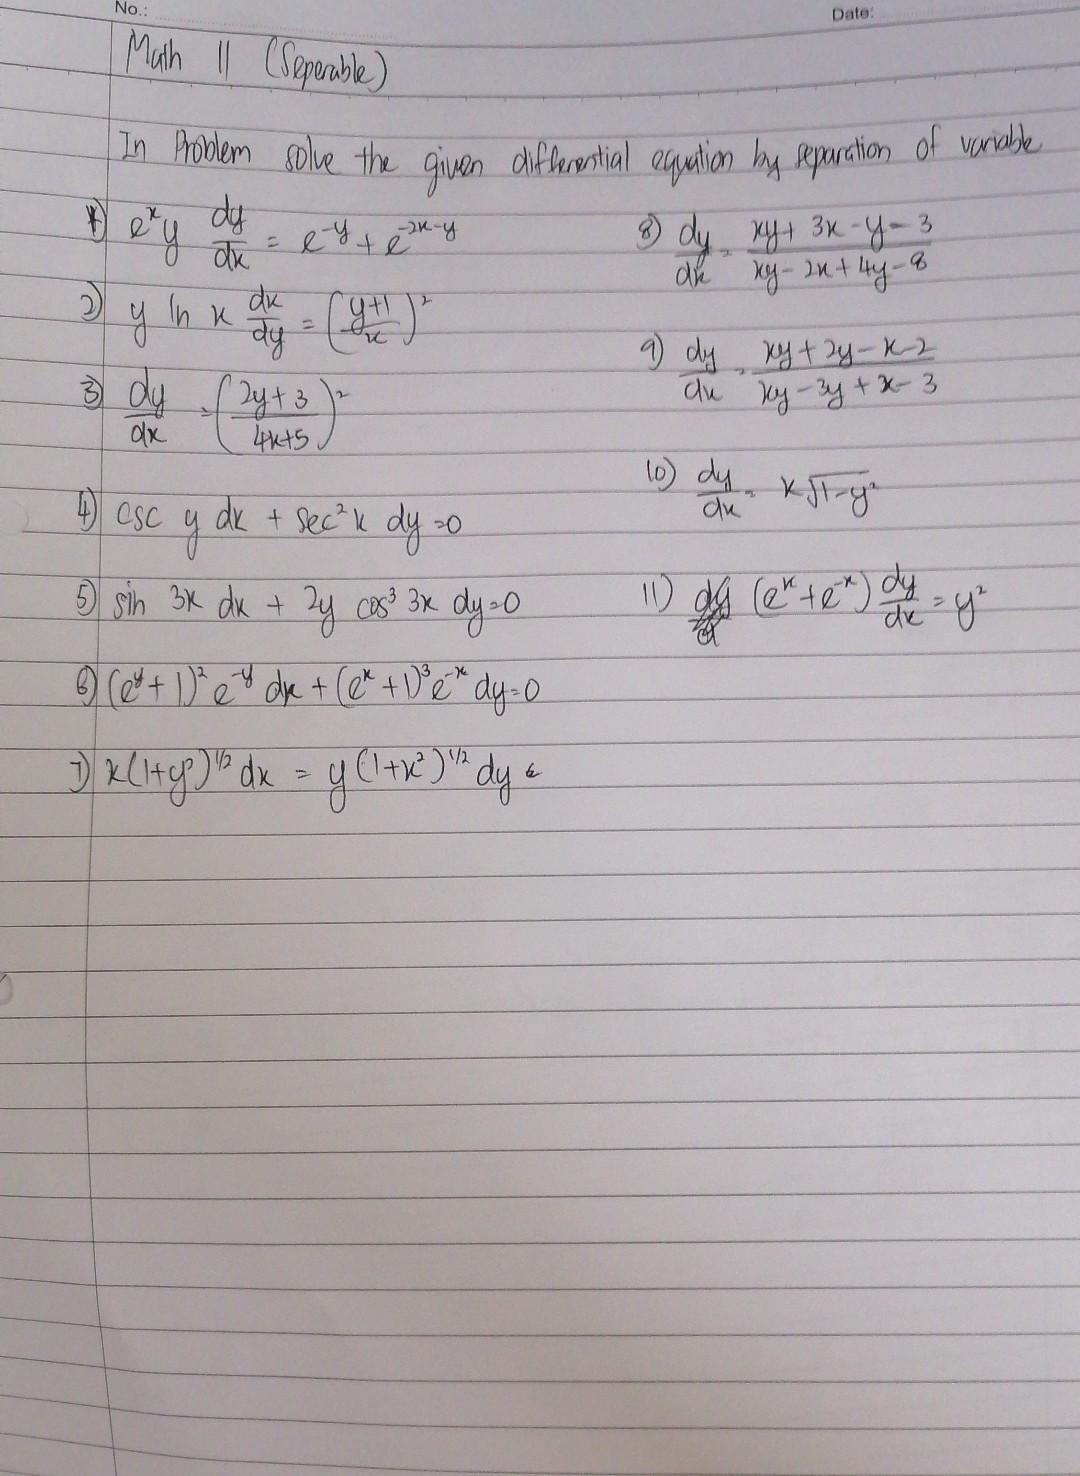 No.:
Date:
Math 11 (Seperable)
In Problem solve the given differential equation by separation of variable
1) e^x y dy/dx = e^-y + e^-2x-y
2) y ln x dx/dy = (y+1/x)^2
3) dy/dx = (2y+3/4x+5)^2
4) csc y dx + sec^2 x dy=0
5) sin 3x dx + 2y cos^3 3x dy=0
6) (e^y+1)^2 e^-y dx + (e^x+1)^3 e^-x dy=0
7) x(1+y^2)^1/2 dx = y(1+x^2)^1/2 dy
8) dy/dx = xy+3x-y-3/xy-2x+4y-8
9) dy/dx = xy+2y-x-2/xy-3y+x-3
10) dy/dx = x√1-y^2
11) (e^x+e^-x) dy/dx = y^2